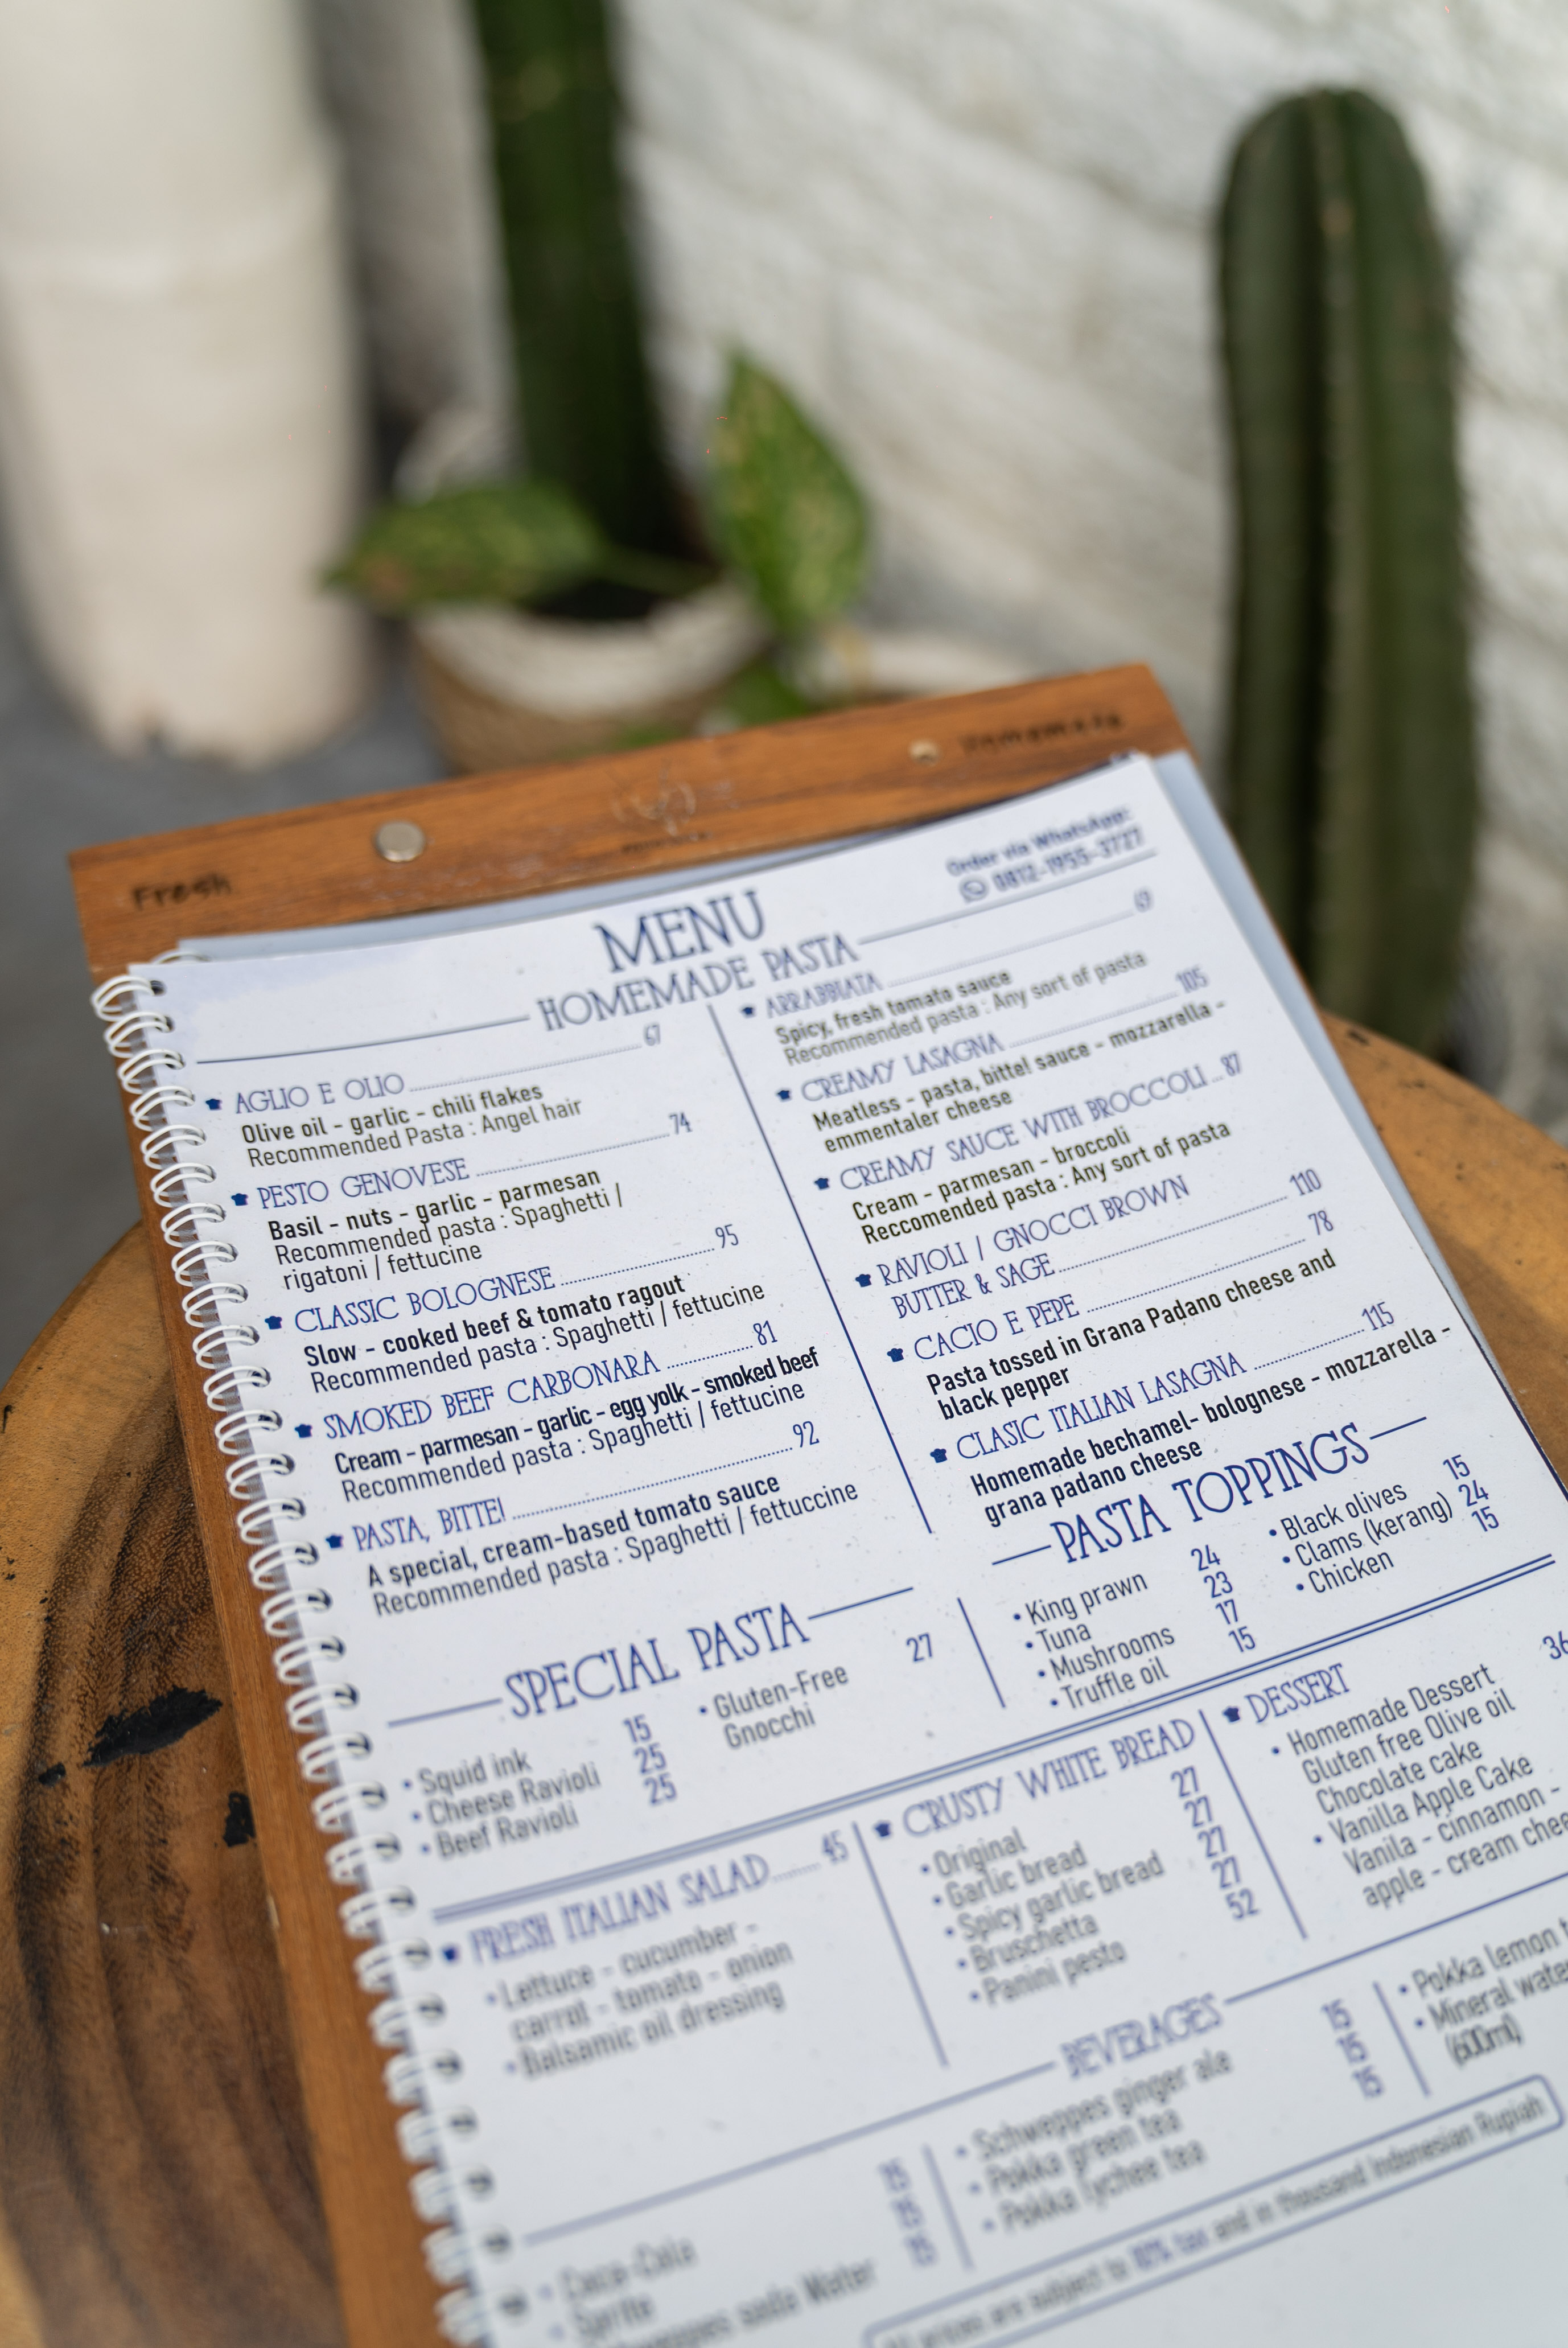 Fresh
Homemade
Order via WhatsApp:
0812-1955-3727
MENU
HOMEMADE PASTA
AGLIO E OLIO 67
Olive oil - garlic - chili flakes
Recommended Pasta : Angel hair
PESTO GENOVESE 74
Basil - nuts - garlic - parmesan
Recommended pasta : Spaghetti /
rigatoni / fettucine
CLASSIC BOLOGNESE 95
Slow - cooked beef & tomato ragout
Recommended pasta : Spaghetti / fettucine
SMOKED BEEF CARBONARA 81
Cream - parmesan - garlic - egg yolk - smoked beef
Recommended pasta : Spaghetti / fettucine
PASTA, BITTE! 92
A special, cream-based tomato sauce
Recommended pasta : Spaghetti / fettuccine
ARRABBIATA 69
Spicy, fresh tomato sauce
Recommended pasta : Any sort of pasta
CREAMY LASAGNA 105
Meatless - pasta, bitte! sauce - mozzarella -
emmentaler cheese
CREAMY SAUCE WITH BROCCOLI 87
Cream - parmesan - broccoli
Reccomended pasta : Any sort of pasta
RAVIOLI / GNOCCI BROWN
BUTTER & SAGE 110
CACIO E PEPE 78
Pasta tossed in Grana Padano cheese and
black pepper
CLASIC ITALIAN LASAGNA 115
Homemade bechamel- bolognese - mozzarella -
grana padano cheese
SPECIAL PASTA
• Squid ink 15
• Cheese Ravioli 25
• Beef Ravioli 25
• Gluten-Free 27
Gnocchi
PASTA TOPPINGS
• King prawn 24
• Tuna 23
• Mushrooms 17
• Truffle oil 15
• Black olives 15
• Clams (kerang) 24
• Chicken 15
FRESH ITALIAN SALAD 45
• Lettuce - cucumber -
carrot - tomato - onion
• Balsamic oil dressing
CRUSTY WHITE BREAD
• Original 27
• Garlic bread 27
• Spicy garlic bread 27
• Bruschetta 27
• Panini pesto 52
DESSERT
• Homemade Dessert 36
Gluten free Olive oil
Chocolate cake
• Vanilla Apple Cake
Vanila - cinnamon -
apple - cream
BEVERAGES
• Coca-Cola 15
• Sprite 15
soda Water 15
• Schweppes ginger ale 15
• Pokka green tea 15
• Pokka lychee tea 15
• Pokka lemon
• Mineral water
(600ml)
prices are subject to 10% tax and in thousand Indonesian Rupiah